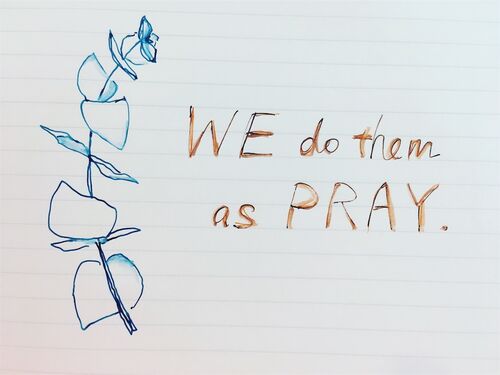 WE do them
as PRAY.